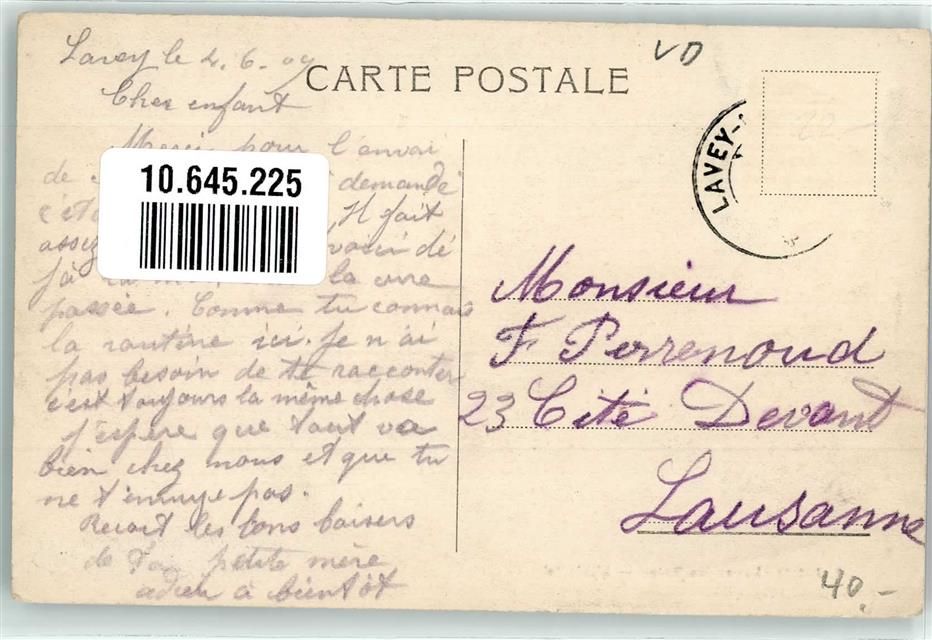 Lavey le 2.6.09
CARTE POSTALE
VD
Cher enfant
Merci pour l'envoi
de demandé
Il fait
assez voici dé
jà la cure
passée. Comme tu connais
la routine ici. je n'ai
pas besoin de te raconter
c'est toujours la même chose
j'espère que tout va
bien chez nous et que tu
ne t'ennuye pas.
Recoit les bons baisers
de Ta petite mère
adieu à bientôt
10.645.225
LAVEY-
22-
Monsieur
F Perrenoud
23 Cité Devant
Lausanne
40.-